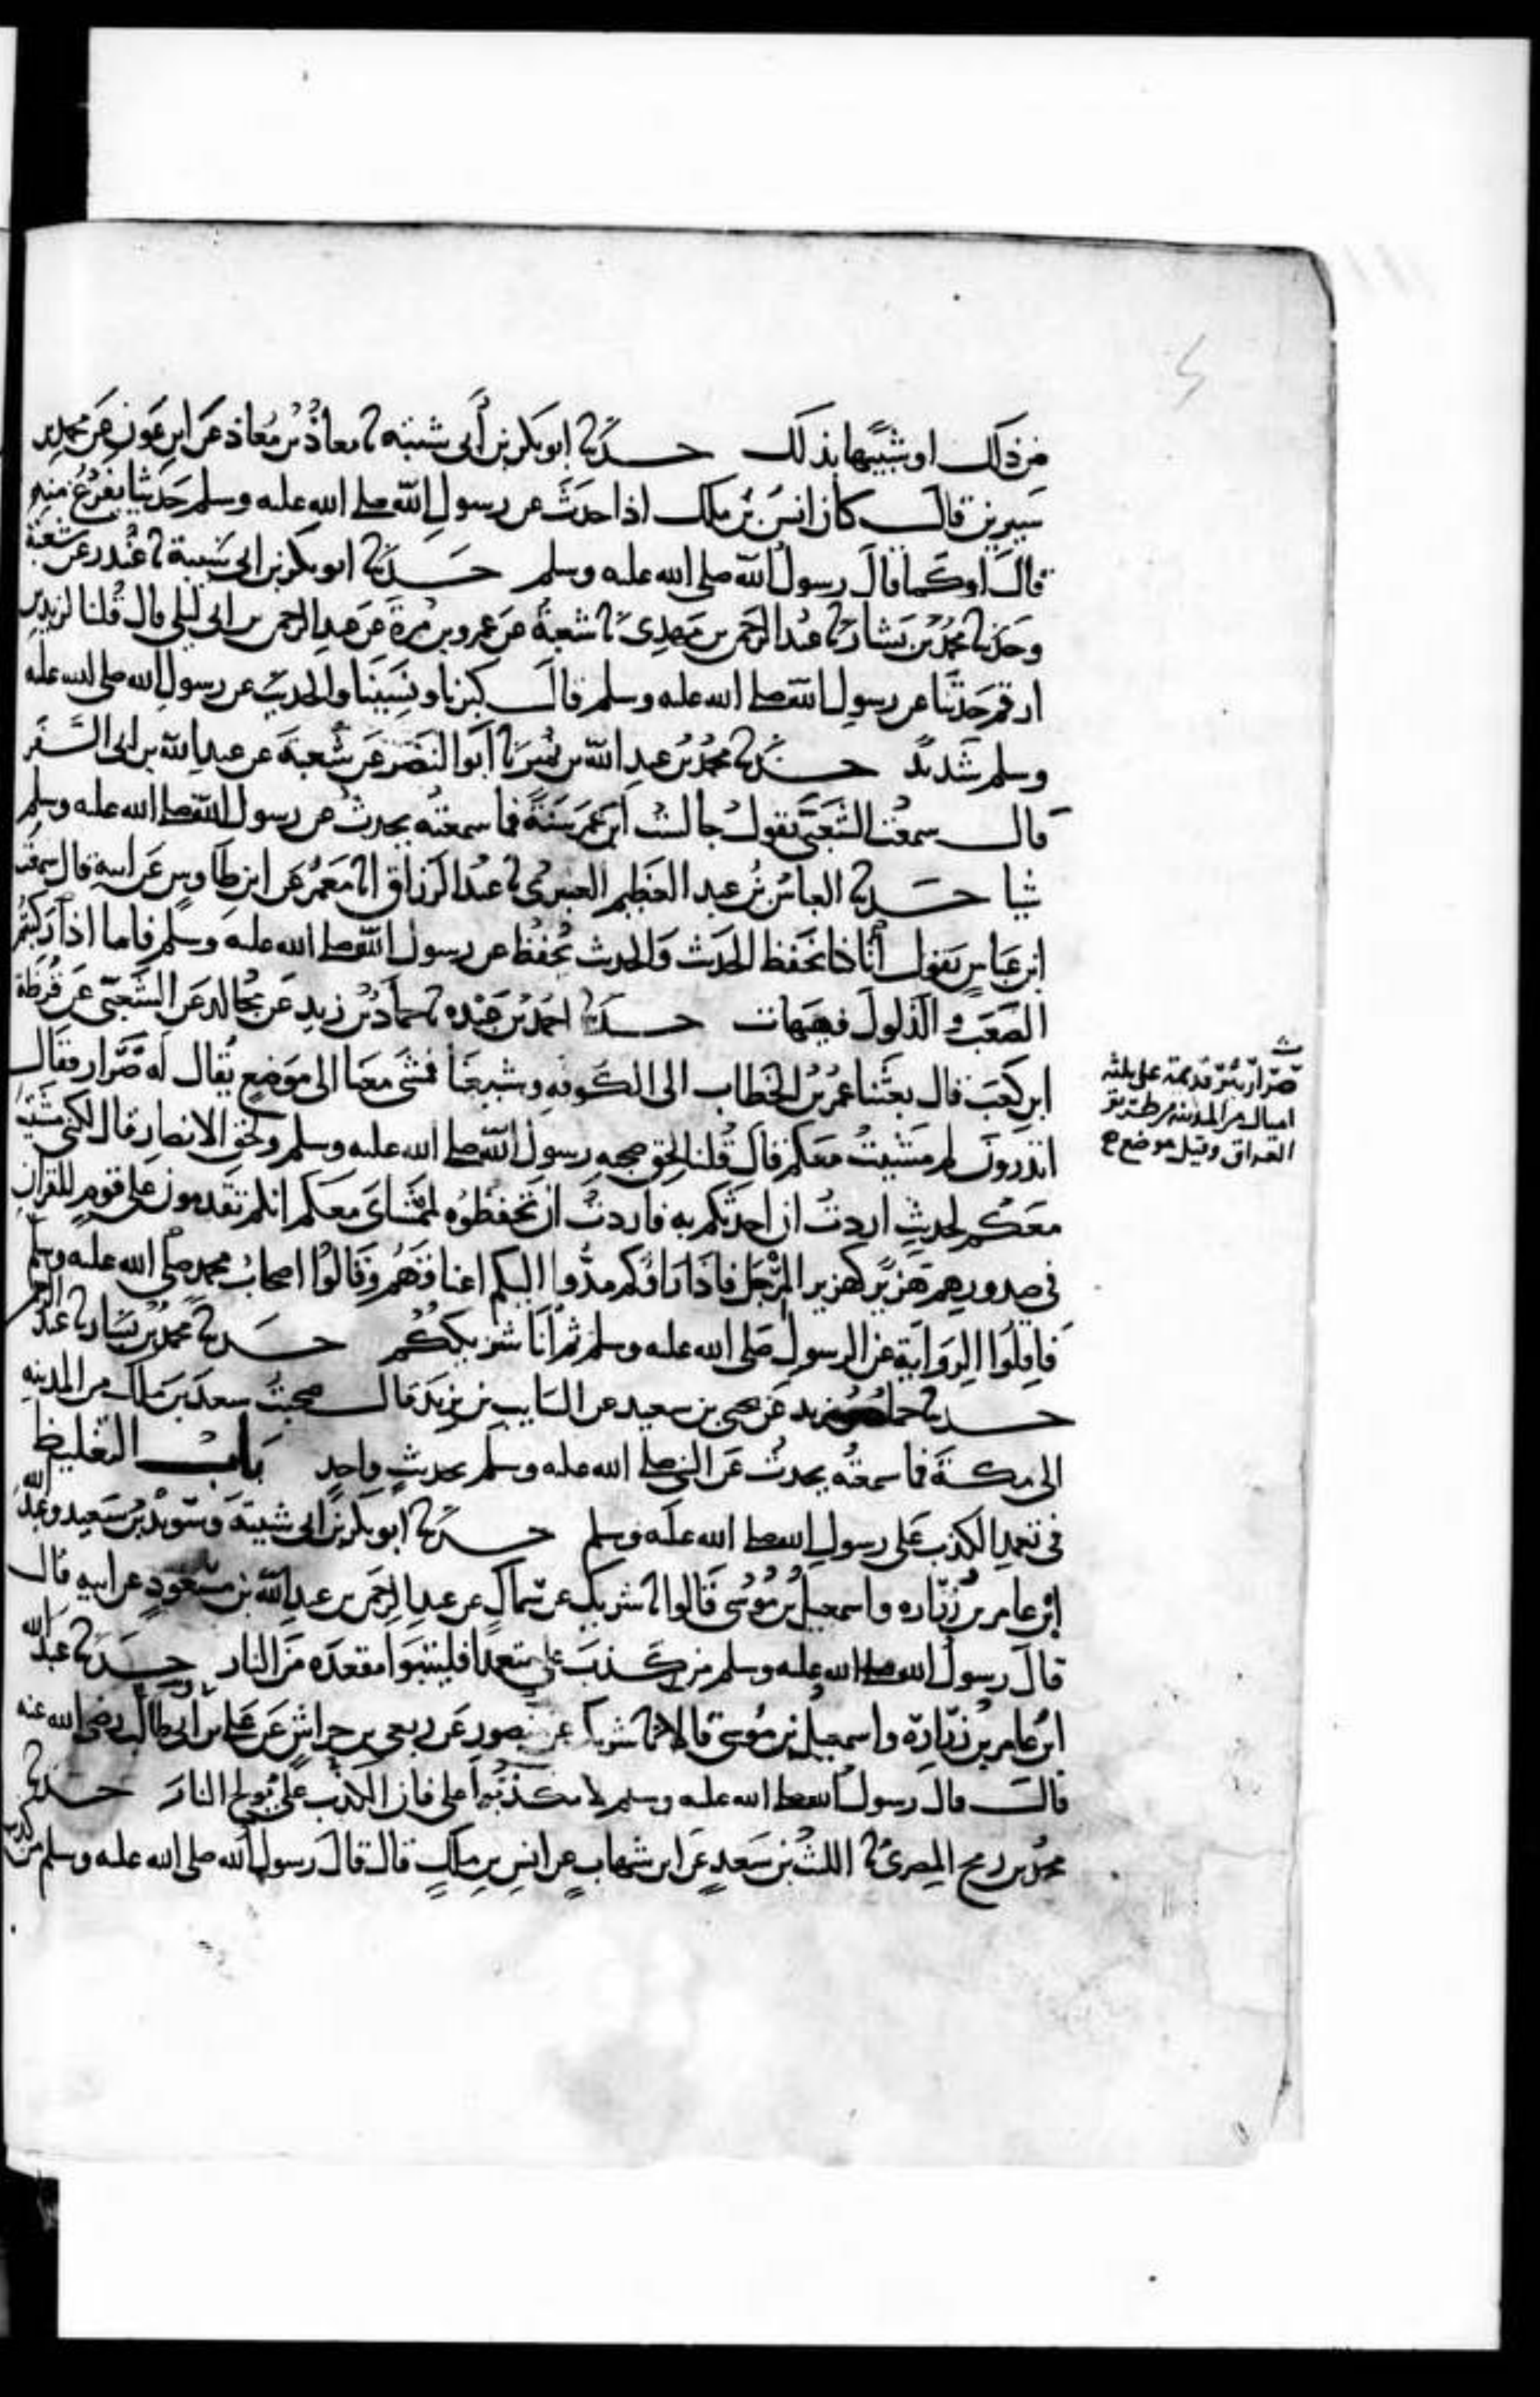 من ذلك او شبيها بذلك حدثنا ابو بكر بن أبي شيبه نا معاذ بن معاذ عن ابن عون عن محمد بن
سيرين قال كان انس بن ملك اذا حدث عن رسول الله صلى الله عليه وسلم حديثا ففرغ منه
قال او كما قال رسول الله صلى الله عليه وسلم حدثنا ابو بكر بن ابي شيبة نا غندر عن شعبة
وحدثنا محمد بن بشار نا عبد الرحمن بن مهدي نا شعبة عن عمرو بن مرة عن عبد الرحمن بن ابي ليلى قال قلنا لزيد بن
ارقم حدثنا عن رسول الله صلى الله عليه وسلم قال كبرنا ونسينا والحديث عن رسول الله صلى الله عليه
وسلم شديد حدثنا محمد بن عبد الله بن نمير نا ابو النضر عن شعبة عن عبد الله بن ابي السفر
قال سمعت الشعبي يقول جالست ابن عمر سنة فما سمعته يحدث عن رسول الله صلى الله عليه وسلم
شيا حدثنا العباس بن عبد العظيم العنبري نا عبد الرزاق انا معمر عن ابن طاوس عن ابيه قال سمعت
ابن عباس يقول انا كنا نحفظ الحديث والحديث يحفظ عن رسول الله صلى الله عليه وسلم فاما اذا ركبتم
الصعب والذلول فهيهات حدثنا احمد بن عبده نا حماد بن زيد عن مجالد عن الشعبي عن قرظة
ابن كعب قال بعثنا عمر بن الخطاب الى الكوفه وشيعنا فمشى معنا الى موضع يقال له صرار فقال
اتدرون لم مشيت معكم قال قلنا لحق صحبه رسول الله صلى الله عليه وسلم ولحق الانصار قال لكني مشيت
معكم لحديث اردت ان احدثكم به فاردت ان تحفظوه لممشاي معكم انكم تقدمون على قوم للقران
في صدورهم هزيز كهزيز المرجل فاذا راوكم مدوا اليكم اعناقهم وقالوا اصحاب محمد صلى الله عليه وسلم
فاقلوا الرواية عن الرسول صلى الله عليه وسلم ثم انا شريككم حدثنا محمد بن بشار نا عبد الرحمن
حدثنا حماد بن زيد عن يحيى بن سعيد عن السايب بن يزيد قال صحبت سعد بن ملك من المدينه
الى مكة فما سمعته يحدث عن النبي صلى الله عليه وسلم بحديث واحد باب التغليظ
في تعمد الكذب على رسول الله صلى الله عليه وسلم حدثنا ابو بكر بن ابي شيبة وسويد بن سعيد وعبد الله
ابن عامر بن زراره واسمعيل بن موسى قالوا نا شريك عن سماك عن عبد الرحمن بن عبد الله بن مسعود عن ابيه قال
قال رسول الله صلى الله عليه وسلم من كذب علي متعمدا فليتبوا مقعده من النار حدثنا عبد الله
ابن عامر بن زرارة واسمعيل بن موسى قالا ثنا شريك عن منصور عن ربعي بن حراش عن علي بن ابي طالب رضي الله عنه
قال قال رسول الله صلى الله عليه وسلم لا تكذبوا علي فان الكذب علي يولج النار حدثنا
محمد بن رمح المصري نا الليث بن سعد عن ابن شهاب عن انس بن ملك قال قال رسول الله صلى الله عليه وسلم من كذب
صرار بئر قديمة على ثلثه
اميال من المدينه من طريق
العراق وقيل موضع